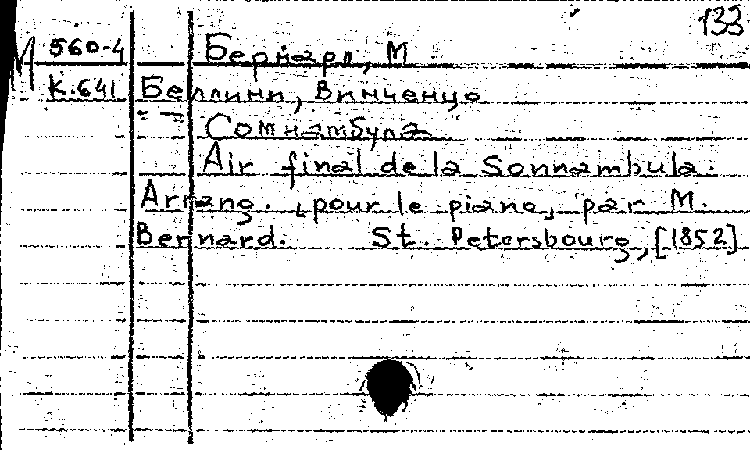 133
М 560-4 Бернард, М
К.641 Беллини, Винченцо
Сомнамбула
Air final de la Sonnambula.
Arrang. pour le piano, par M.
Bernard. St. Petersbourg, [1852]